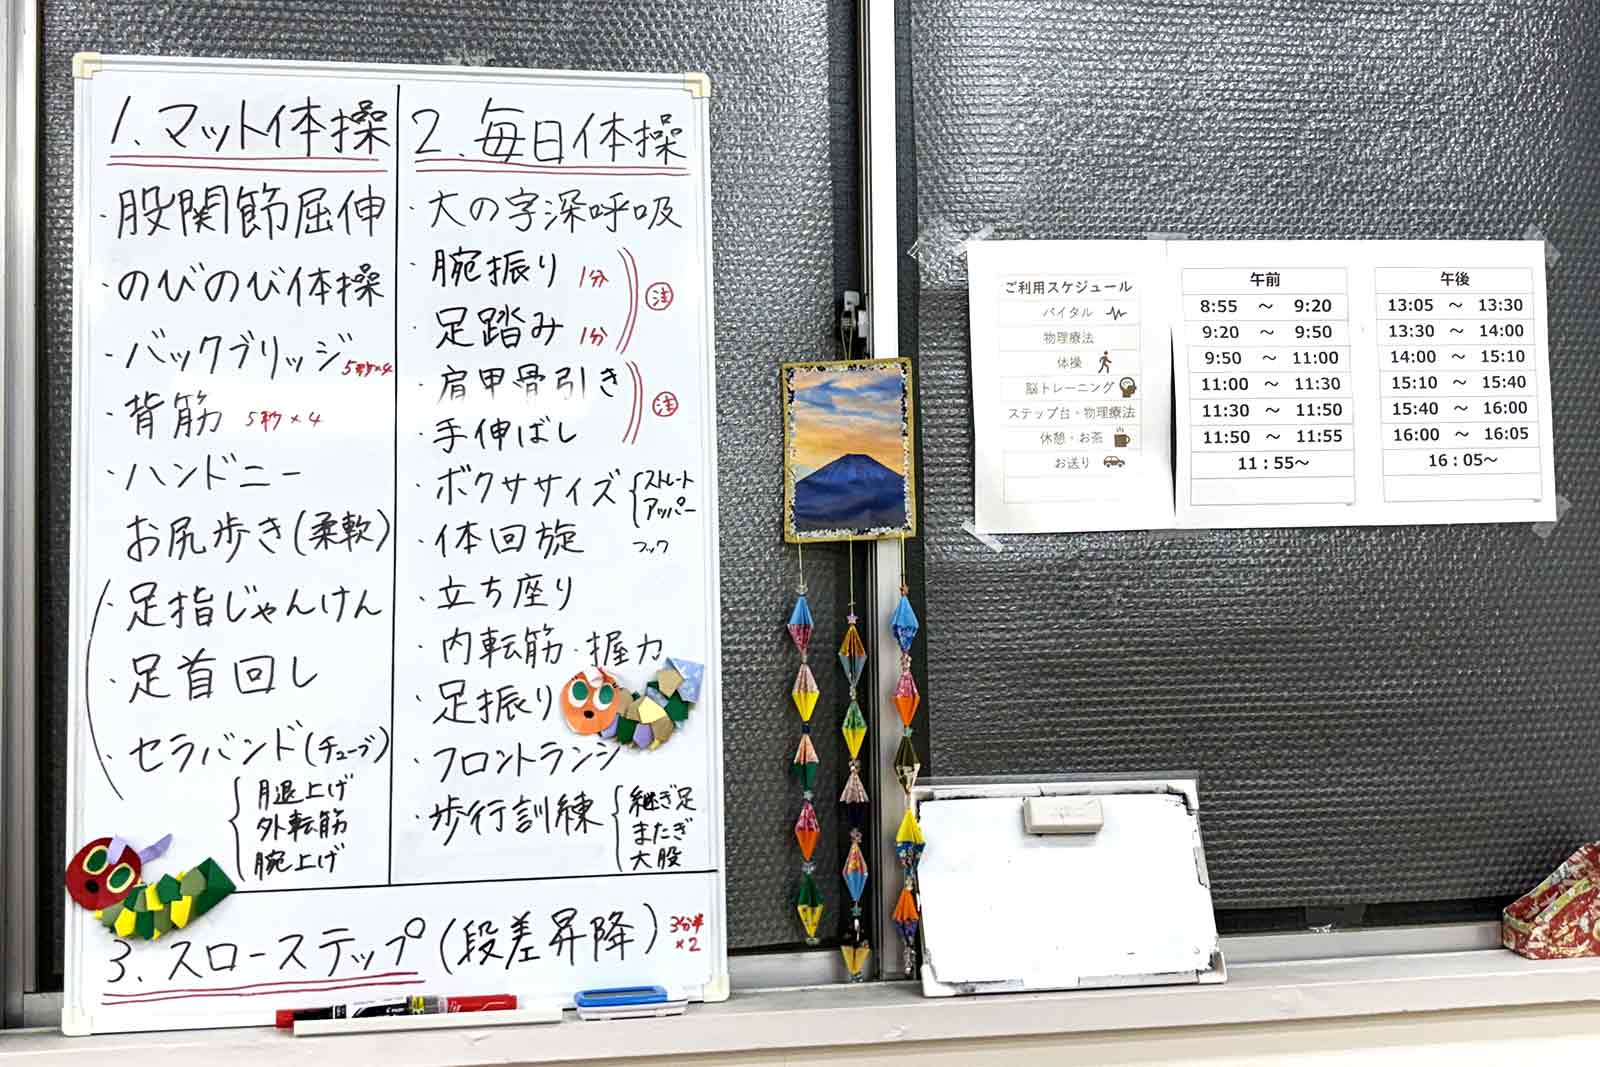 1、マット体操
・股関節屈伸
・のびのび体操
・バックブリッジ 5秒×4
・背筋 5秒×4
・ハンドニー
お尻歩き(柔軟)
・足指じゃんけん
・足首回し
・セラバンド(チューブ)
外転筋
腕上げ
2、毎日体操
・大の字深呼吸
・腕振り 1分
・足踏み 1分
注
・肩甲骨引き
・手伸ばし
注
・ボクササイズ
ストレート
アッパー
フック
・体回旋
・立ち座り
・内転筋・握力
・足振り
・フロントランジ
・歩行訓練
継ぎ足
またぎ
大股
3、スローステップ(段差昇降) 3分半
×2
ご利用スケジュール 午前 午後
バイタル 8:55 ～ 9:20 13:05 ～ 13:30
物理療法 9:20 ～ 9:50 13:30 ～ 14:00
体操 9:50 ～ 11:00 14:00 ～ 15:10
脳トレーニング 11:00 ～ 11:30 15:10 ～ 15:40
ステップ台・物理療法 11:30 ～ 11:50 15:40 ～ 16:00
休憩・お茶 11:50 ～ 11:55 16:00 ～ 16:05
お送り 11：55～ 16：05～